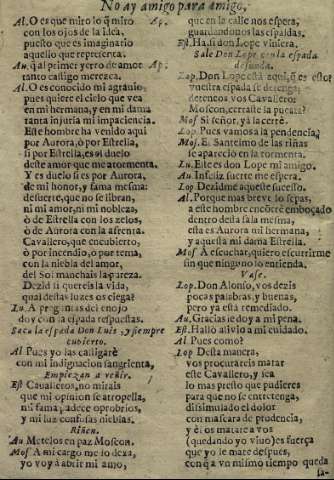 No ay amigo para amigo,
Al. O es que miro lo q̃ miro Ap.
con los ojos de la idea,
puesto que es imaginario
aquello que representa.
Au. q̃ al primer yerro de amor Ap.
tanto castigo merezca.
Al. O es conocido mi agrauio,
pues quiere el cielo que vea
en mi hermana, y en mi dama
tanta injuria mi impaciencia.
Este hombre ha venido aqui
por Aurora, ò por Estrella,
si por Estrella, es el duelo
deste amor que me atormenta.
Y es duelo si es por Aurora,
de mi honor, y fama mesma:
de suerte, que no se libran,
ni mi honor, ni mi nobleza,
ò de Estrella con los zelos,
ò de Aurora con la afrenta.
Cavallero, que encubierto,
ò por incendio, o por tema,
con la niebla del amor,
del Sol manchais la pureza.
Dezid si quereis la vida,
qual destas luzes os ciega?
Lu. A preguntas del enojo
doy con la espada respuestas.
Saca la espada Don Luis, y siempre
cubierto.
Al. Pues yo las castigarè
con mi indignacion sangrienta,
Empiezan a reñir.
Est. Cavalleros, no mirais
que mi opinion se atropella,
mi fama padece oprobrios,
y mi luz confusas nieblas.
Riñen.
Au. Metelos en paz Moscon.
Mos. A mi cargo me lo dexa,
yo voy à abrir mi amo,
que en la calle nos espera,
guardandonos las espaldas.
Est. Ha si don Lope viniera.
Sale Don Lope con la espada
desnuda.
Lop. Don Lope està aqui, q̃ es esto?
vuestra espada se detenga;
deteneos vos Cavallero:
Moscon, cerraste la puerta?
Mos. Si señor, ya la cerrè.
Lop. Pues vamos la pendencia,
Mos. E. Santelmo de las riñas
se apareciò en la tormenta.
Lu. Este es don Lope mi amigo.
Au. Infeliz suerte me espera.
Lop. Dezidme aqueste sucesso.
Al. Porque mas breve lo sepas,
a este hombre encõtrè embozado
dentro desta sala mesma,
esta es Aurora mi hermana,
y aquesta mi dama Estrella.
Mos. A escuchar, quiero escurrirme
sin que ninguno lo entienda.
Vase.
Lop. Don Alonso, vos dezis
pocas palabras, y buenas,
pero ya està remediado.
Au. Gracias le doy a mi pena.
Est. Hallò alivio a mi cuidado.
Al. Pues como?
Lop. Desta manera,
vos procurareis matar
este Cavallero, y sea
lo mas presto que pudieres
para que no se entretenga,
dissimulado el dolor
con mascara de prudencia,
y èl os matare a vos
(quedando yo vivo) es fuerça
que yo le mate despues,
con q̃ a vn mismo tiempo queda
sa-